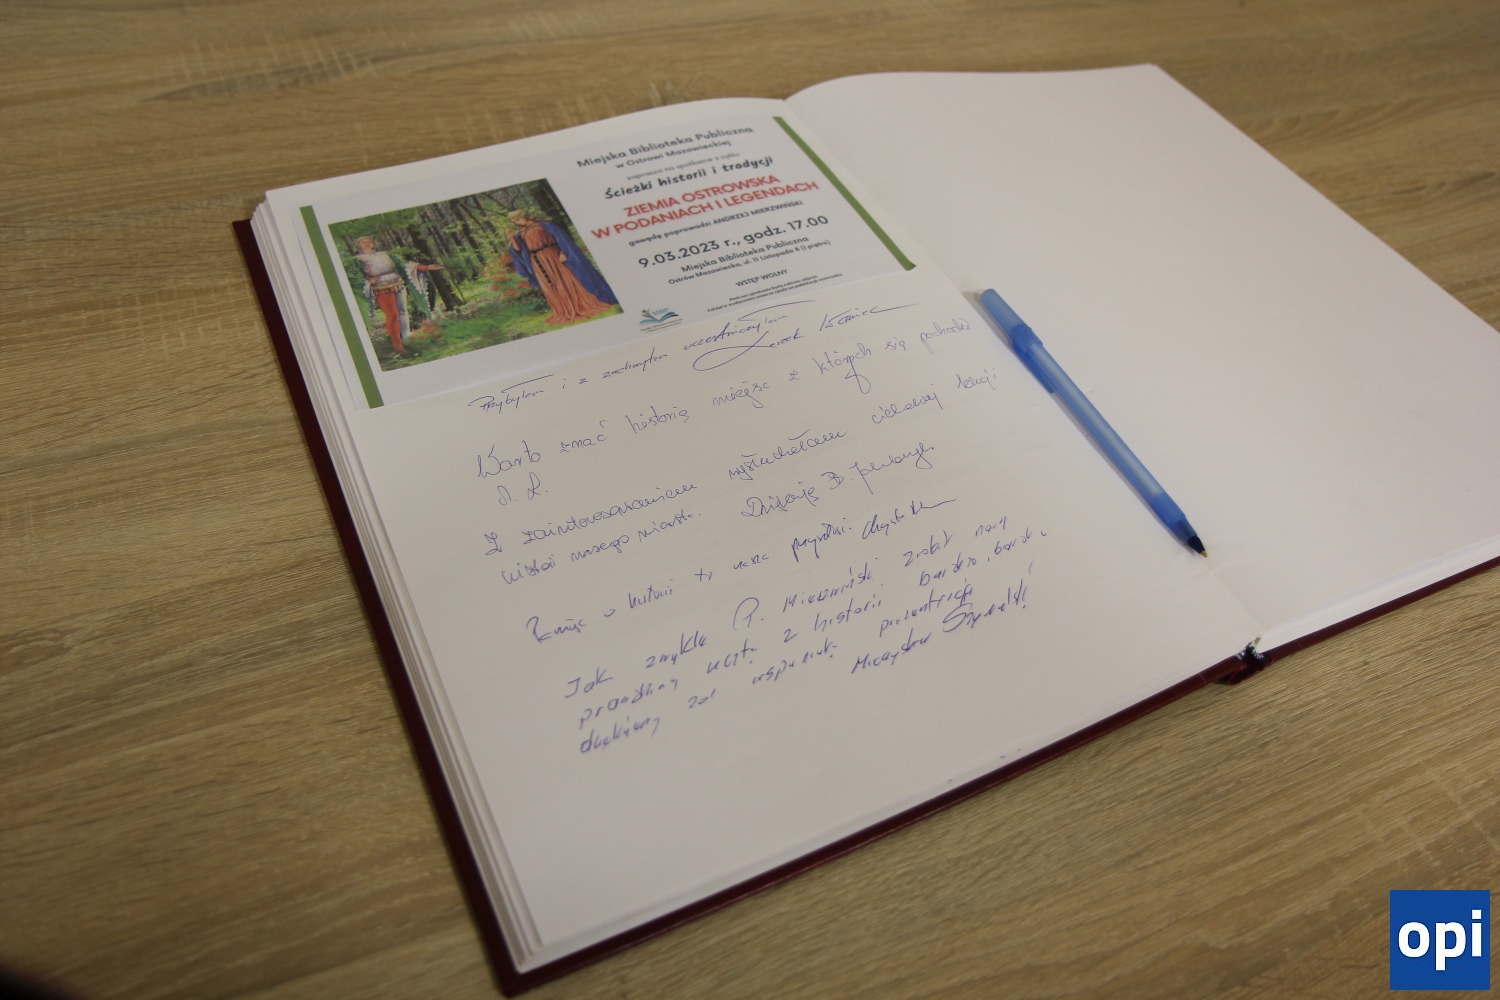 Miejska Biblioteka Publiczna
w Ostrowi Mazowieckiej
zaprasza na spotkanie z cyklu
Ścieżki historii i tradycji
ZIEMIA OSTROWSKA
W PODANIACH I LEGENDACH
gawędę poprowadzi ANDRZEJ MIERZWIŃSKI
9.03.2023 r., godz. 17.00
Miejska Biblioteka Publiczna
Ostrów Mazowiecka, ul. 11 Listopada 6 (I piętro)
WSTĘP WOLNY
MBP
Przybyłem i z zachwytem uczestniczyłem
Leszek
Warto znać historię miejsc z których się pochodzi
Z zainteresowaniem wysłuchałam ciekawej lekcji
historii naszego miasta. Dziękuję B.
Jak zwykle P. Mierzwiński zrobił nam
prawdziwą ucztę z historii bardzo, bardzo
dziękujemy za wspaniałą prezentację
Mieczysław Szymalski
opi